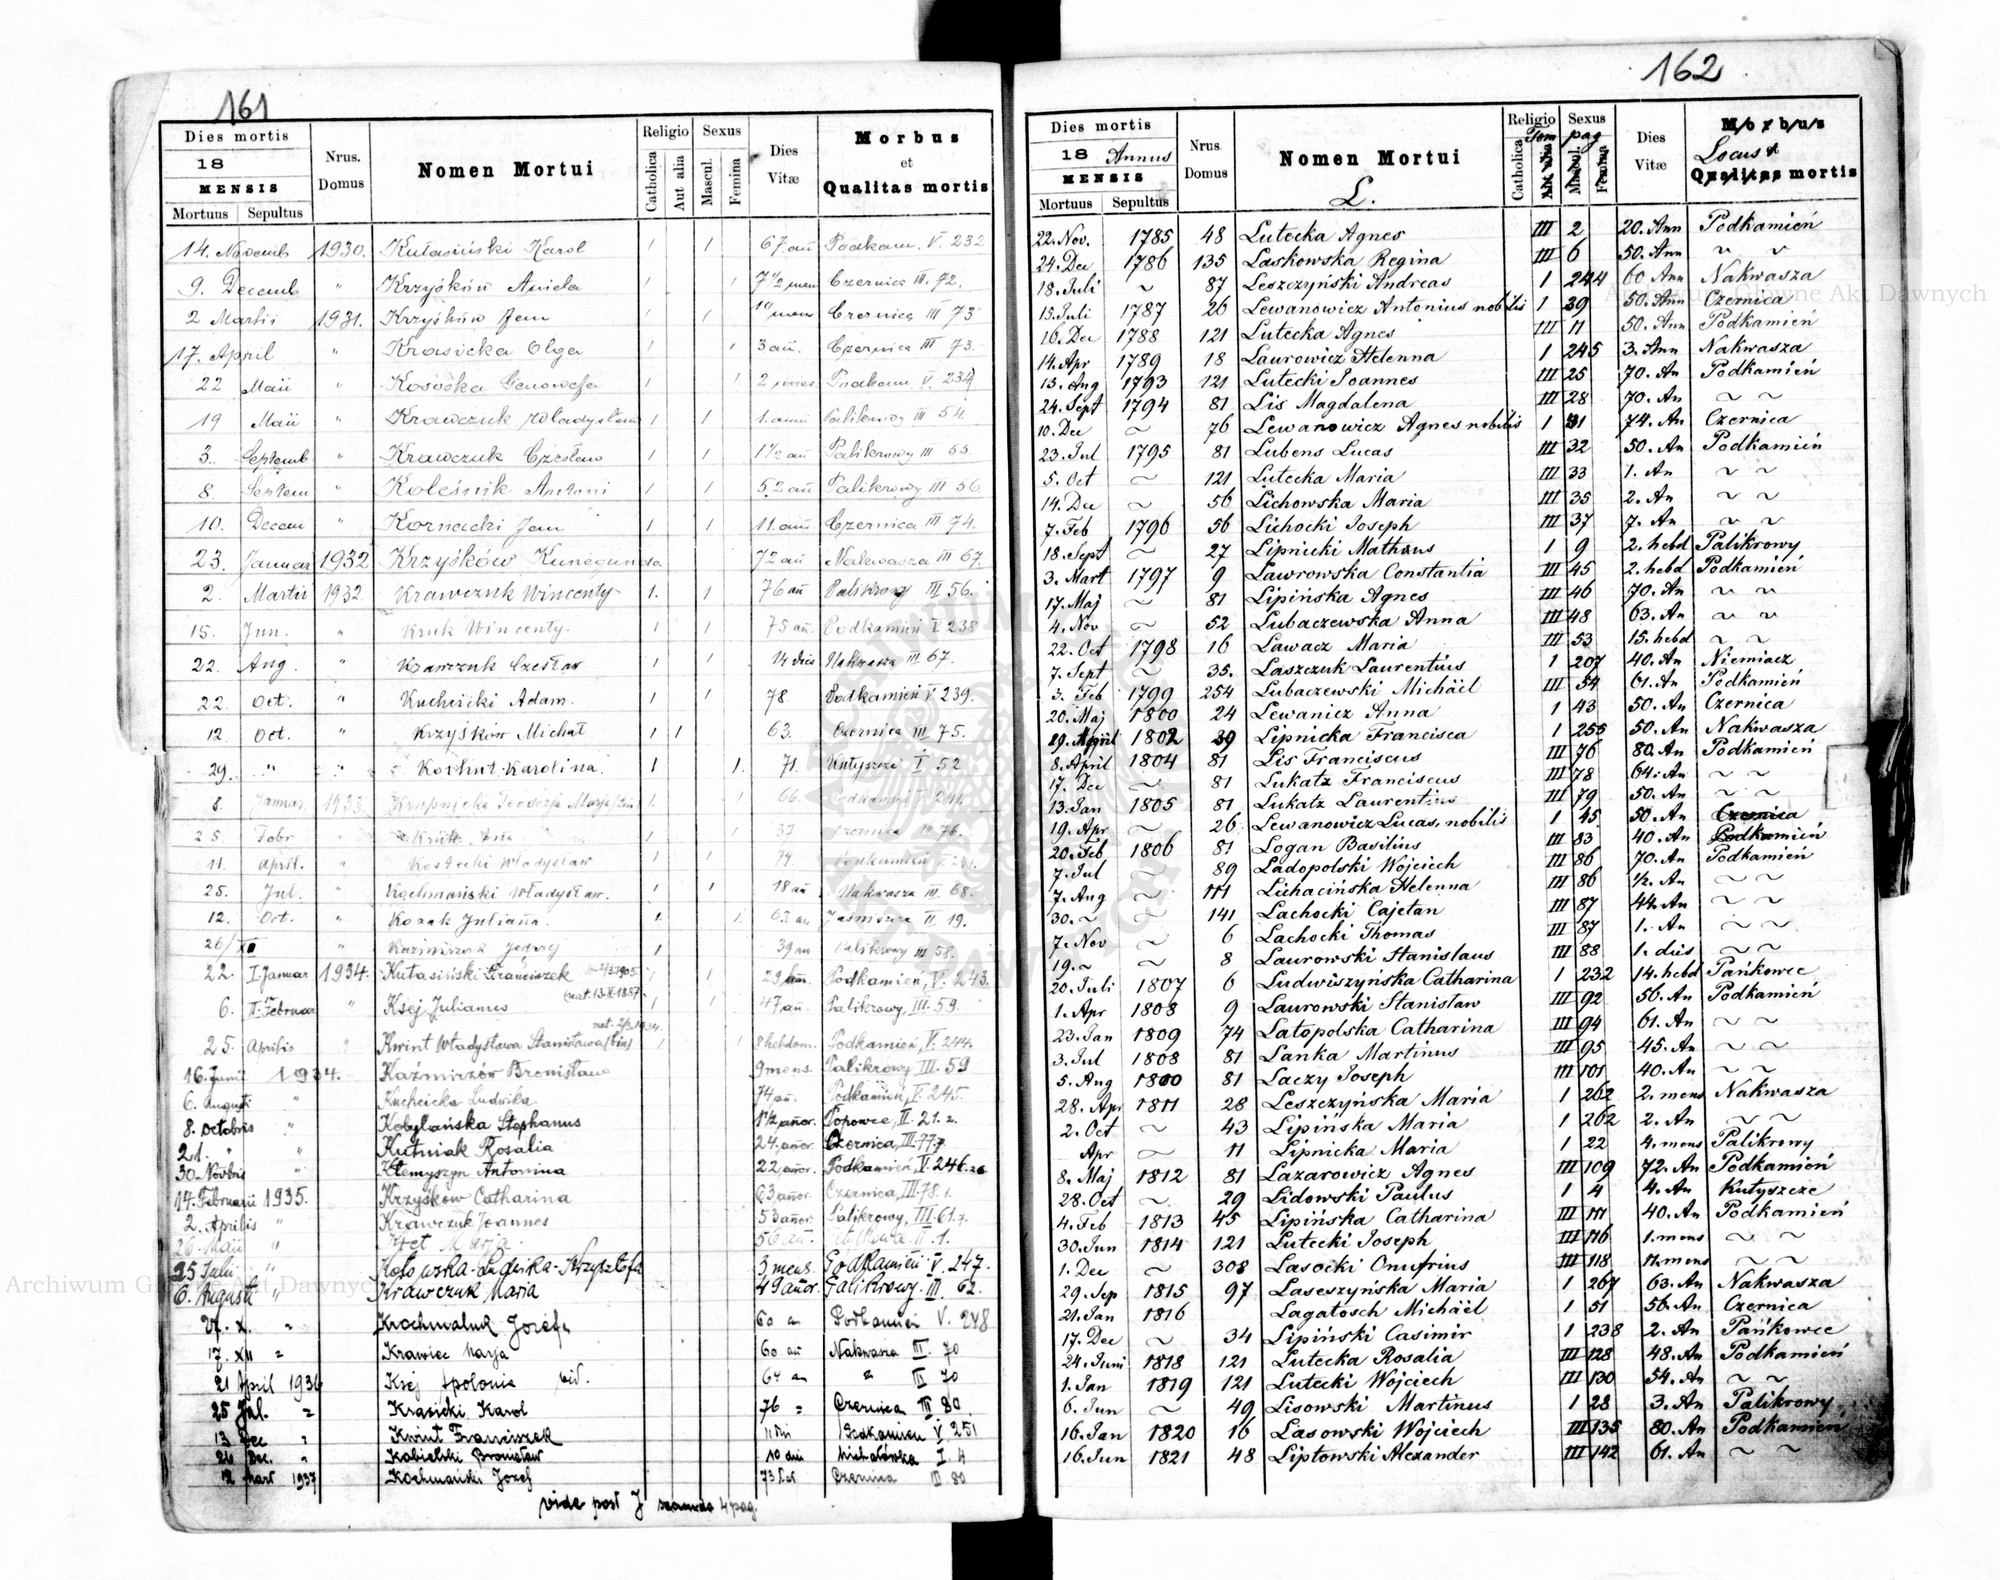 161
Dies mortis
18
MENSIS
Mortuus Sepultus
Nrus. Domus
Nomen Mortui
Religio
Catholica
Aut alia
Sexus
Mascul.
Femina
Dies Vitæ
Morbus
et
Qualitas mortis
14. Novemb 1930. Kułasiński Karol 1 1 67. añ Podkam. V. 232
9. Decemb " Krzyśków Aniela 1 1 7½ men Czernica III. 72.
2 Martii 1931. Krzyśków Jan 1 1 Czernica III 73
17. April " Krasicka Olga 1 1 3 añ. Czernica III 73.
22 Maii " Kosiocka Genowefa 1 1 Podkam. V. 234
19 Maii " Krawczuk Władysław 1 1 1. anni Palikrowy III 54.
3. Septemb " Krawczuk Czesław 1 1 1½ añ Palikrowy III 55.
8. Septem " Koleśnik Antoni 1 1 52 añ Palikrowy III 56
10. Decem " Kornacki Jan 1 1 11. añ Czernica III 74.
23. Januar 1932 Krzyśków Kunegunda 72 añ Nakwasza III 67.
2. Martii 1932. Krawczuk Wincenty 1. 1 76 añ Palikrowy III 56.
15. Jun. " Kruk Wincenty. 1 1 75 añ. Podkamień V 238
22. Aug. " Krawczuk Czesław 1 1 14 dies Nakwasza III 67.
22. Oct. " Kucheicki Adam. 1 1 78. Podkamień V 239.
12. Oct. " Krzyśków Michał 1 1 63. Czernica III 75.
29. " " Korhut Karolina. 1 1. 71. Kutyszcze I 52
8. Januar 1933. Krupnicka Teodozja 1. 1 66. Podkamień V
25 Febr " Kruk 1 1 37 Czernica III 76.
11. April. " Kostecki Władysław 1 1 74. Podkamień V.
25. Jul. " Kochmański Władysław. 1 1 18 añ Nakwasza III. 68.
12. Oct. " Kozak Julianna. 1. 1. 63 an Jaśniszcze II. 19.
26/XII " Kaźmirzuk Jędrzej 1 39 an Palikrowy III 58.
22. I. Januar 1934. Kułasiński Franciszek 1 1 29 añ. Podkamień, V. 243.
6. II. Februar " Ksej Julianus (nat. 13.II.1887. 1 1 47 añ. Palikrowy, III. 59.
25. Aprilis " Kwint Władysława Stanisława (bin) nat. 2/2 1934. 1 1 8 hebdom. Podkamień, V. 244.
16. Junii 1934. Kaźmirzów Bronisław 9 mens. Palikrowy III. 59
6. Augusti " Kucheicka Ludwika 74 añ. Podkamień, V. 245.
8. Octobris " Kobylańska Stephanus 1½ añor. Popowce, II. 21. 2.
21. " " Kutniak Rosalia 24. añor. Czernica, III. 77.
30. Novbris " Klemyszyn Antonina 22 añor. Podkamień V. 246.
14. Februarii 1935. Krzyśków Catharina 63 añor. Czernica, III. 78. 1.
2. Aprilis " Krawczuk Joannes 53 añor. Palikrowy, III. 61.
26. Maii " Kret Marja 56 añ.
25 Julii " Kossowska Ludwika-Krzysztofa 3 mens. Podkamień V. 247.
6. Augusti " Krawczuk Maria 49 añor. Palikrowy. III. 62.
27. X. " Krochmaluk Józefa 60 a Podkamień V. 248
17. XII " Krawiec Marja 60 añ Nakwasza III. 70
21 April 1936 Ksej Apolonia vid. 64 a " III 70
25 Jul. " Krasicki Karol 76 " Czernica III 80.
13 Dec " Kwint Franciszek 11 dni Podkamień V 251
26 Dec. " Kobielski Bronisław 10 dni Michałówka I. 4
12 Mart 1937 Kochmański Józef 73 lat Czernica III 80
vide post J secunda 4 pag.
162
Dies mortis
18 Annus
MENSIS
Mortuus Sepultus
Nrus. Domus
Nomen Mortui
L.
Religio
Tom
Catholica
Aut alia
Sexus
pag
Mascul.
Femina
Dies Vitæ
Morbus
Locus
Qualitas mortis
22. Nov. 1785 48 Lutecka Agnes III 2 20. Ann Podkamień
24. Dec 1786 135 Laskowska Regina III 6 50. Ann ~ ~
18. Juli ~ 87 Leszczyński Andreas 1 244 60 Ann Nakwasza
15. Juli 1787 26 Lewanowicz Antonius nobilis 1 39 50. Ann Czernica
16. Dec 1788 121 Lutecka Agnes III 11 50. Ann Podkamień
14. Apr 1789 18 Laurowicz Helenna 1 245 3. Ann Nakwasza
13. Aug 1793 121 Lutecki Joannes III 25 70. An Podkamień
24. Sept 1794 81 Lis Magdalena III 28 70. An ~ ~
10. Dec ~ 76 Lewanowicz Agnes nobilis 1 31 74. An Czernica
23. Jul 1795 81 Lubens Lucas III 32 50. An Podkamień
5. Oct ~ 121 Lutecka Maria III 33 1. An ~ ~
14. Dec ~ 56 Lichowska Maria III 35 2. An ~ ~
7. Feb 1796 56 Lichocki Joseph III 37 7. An ~ ~
18. Sept ~ 27 Lipnicki Matheus 1 9 2. hebd Palikrowy
3. Mart 1797 9 Lawrowska Constantia III 45 2. hebd Podkamień
17. Maj ~ 81 Lipińska Agnes III 46 70. An ~ ~
4. Nov ~ 52 Lubaczewska Anna III 48 63. An ~ ~
22. Oct 1798 16 Lawacz Maria III 53 15. hebd ~ ~
7. Sept ~ 35. Laszczuk Laurentius 1 207 40. An Niemiacz
3. Feb 1799 254 Lubaczewski Michäel III 54 61. An Podkamień
20. Maj 1800 24 Lewanicz Anna 1 43 50. An Czernica
29. April 1802 39 Lipnicka Francisca 1 255 50. An Nakwasza
8. April 1804 81 Lis Franciscus III 76 80. An Podkamień
17. Dec ~ 81 Lukatz Franciscus III 78 64. An ~ ~
13. Jan 1805 81 Lukatz Laurentius III 79 50. An ~ ~
19. Apr ~ 26 Lewanowicz Lucas, nobilis 1 45 50. An Czernica
20. Feb 1806 81 Logan Basilius III 83 40. An Podkamień
7. Jul ~ 89 Ladopolski Wojciech III 86 70. An Podkamień
7. Aug ~ 111 Lichacińska Helenna III 86 ½. An ~ ~
30. ~ ~ 141 Lachocki Cajetan III 87 44. An ~ ~
7. Nov ~ 6 Lachocki Thomas III 87 1. An ~ ~
19. ~ ~ 8 Laurowski Stanislaus III 88 1. dies ~ ~
20. Juli 1807 6 Ludwiszyńska Catharina 1 232 14. hebd Pańkowce
1. Apr 1808 9 Laurowski Stanislaw III 92 56. An Podkamień
23. Jan 1809 74 Latopolska Catharina III 94 61. An ~ ~
3. Jul 1808 81 Lanka Martinus III 95 45. An ~ ~
5. Aug 1810 81 Laczy Joseph III 101 40. An ~ ~
28. Apr 1811 28 Leszczyńska Maria 1 262 2. mens Nakwasza
2. Oct ~ 43 Lipińska Maria 1 262 2. An ~ ~
Apr ~ 11 Lipnicka Maria 1 22 4. mens Palikrowy
8. Maj 1812 81 Lazarowicz Agnes III 109 72. An Podkamień
28. Oct ~ 29 Lidowski Paulus 1 4 4. An Kutyszcze
4. Feb 1813 45 Lipińska Catharina III 111 40. An Podkamień
30. Jun 1814 121 Lutecki Joseph III 116 1. mens ~ ~
1. Dec ~ 308 Lasocki Onufrius III 118 11. mens ~ ~
29. Sep 1815 97 Laseszyńska Maria 1 267 63. An Nakwasza
21. Jan 1816 Lagatosch Michäel 1 51 56. An Czernica
17. Dec ~ 34 Lipiński Casimir 1 238 2. An Pańkowce
24. Juni 1818 121 Lutecka Rosalia III 128 48. An Podkamień
1. Jan 1819 121 Lutecki Wojciech III 130 54. An ~ ~
6. Jun ~ 49 Lisowski Martinus 1 28 3. An Palikrowy
16. Jan 1820 16 Lasowski Wojciech III 135 80. An Podkamień
16. Jun 1821 48 Liptowski Alexander III 142 61. An ~ ~
Archiwum Główne Akt Dawnych
Archiwum Główne Akt Dawnych